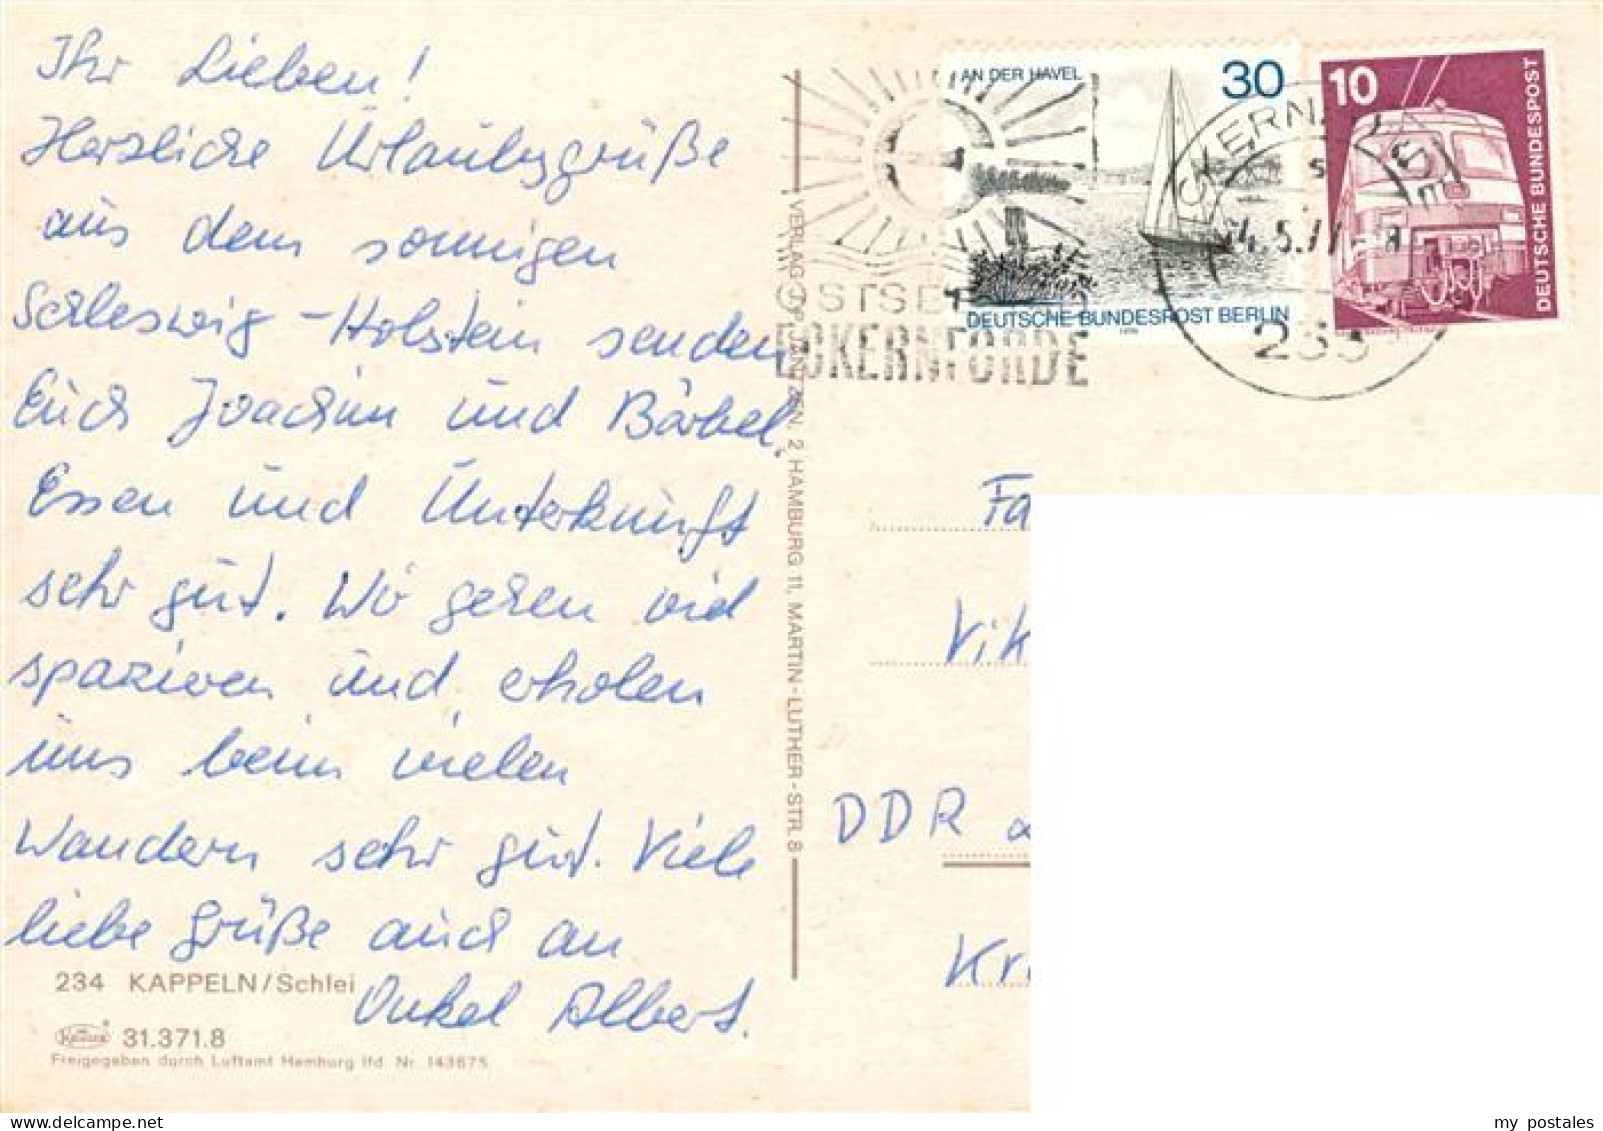 Ihr Lieben!
Herzliche Urlaubsgrüße
aus dem sonnigen
Schleswig-Holstein senden
Euch Joachim und Bärbel.
Essen und Unterkunft
sehr gut. Wir gehen viel
spazieren und erholen
uns beim vielen
Wandern sehr gut. Viele
liebe Grüße auch an
Onkel Albert.
234 KAPPELN/Schlei
KRÜGER 31.371.8
Freigegeben durch Luftamt Hamburg lfd. Nr. 143675
VERLAG JANTZEN, 2 HAMBURG 11, MARTIN-LUTHER-STR. 8
AN DER HAVEL 30
DEUTSCHE BUNDESPOST BERLIN
1976
10
DEUTSCHE BUNDESPOST
OSTSEE
ECKERNFÖRDE
ECKERNFÖRDE
Fa
Vik
DDR
Kr
my postales